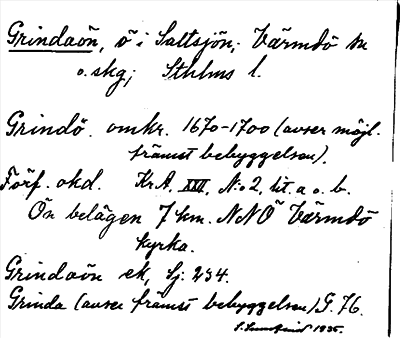 Grindaön, ö i Saltsjön; Värmdö sn
o. skg; Sthlms l.
Grindö. omkr. 1670-1700 (avser möjl.
främst bebyggelsen).
Förf. okd. Kr.A. XXV, N:o 2, lit. a o. b.
Ön belägen 7 km. NNÖ Värmdö
kyrka.
Grindaön ek, Sj. 234.
Grinda (avser främst bebyggelsen) G. 76.
1935.